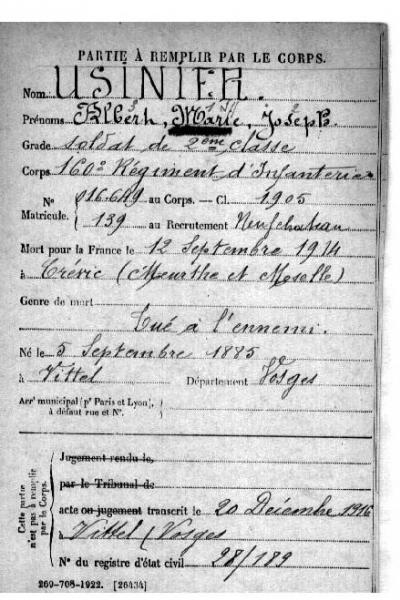 PARTIE À REMPLIR PAR LE CORPS.
Nom USINIER.
Prénoms Albert, Marie, Joseph.
3 1 2
Grade Soldat de 2ème classe
Corps 160e Régiment d'Infanterie
N° 016.649 au Corps. — Cl. 1905
Matricule. 139 au Recrutement Neufchateau
Mort pour la France le 12 Septembre 1914
à Crévic (Meurthe et Moselle)
Genre de mort
Tué à l'ennemi.
Né le 5 Septembre 1885
à Vittel Département Vosges
Arrt municipal (pr Paris et Lyon),
à défaut rue et N°.
Cette partie
n'est pas à remplir
par le Corps.
Jugement rendu le
par le Tribunal de
acte ou jugement transcrit le 20 Décembre 1916
à Vittel (Vosges
N° du registre d'état civil 28/189
269-708-1922. [26434]